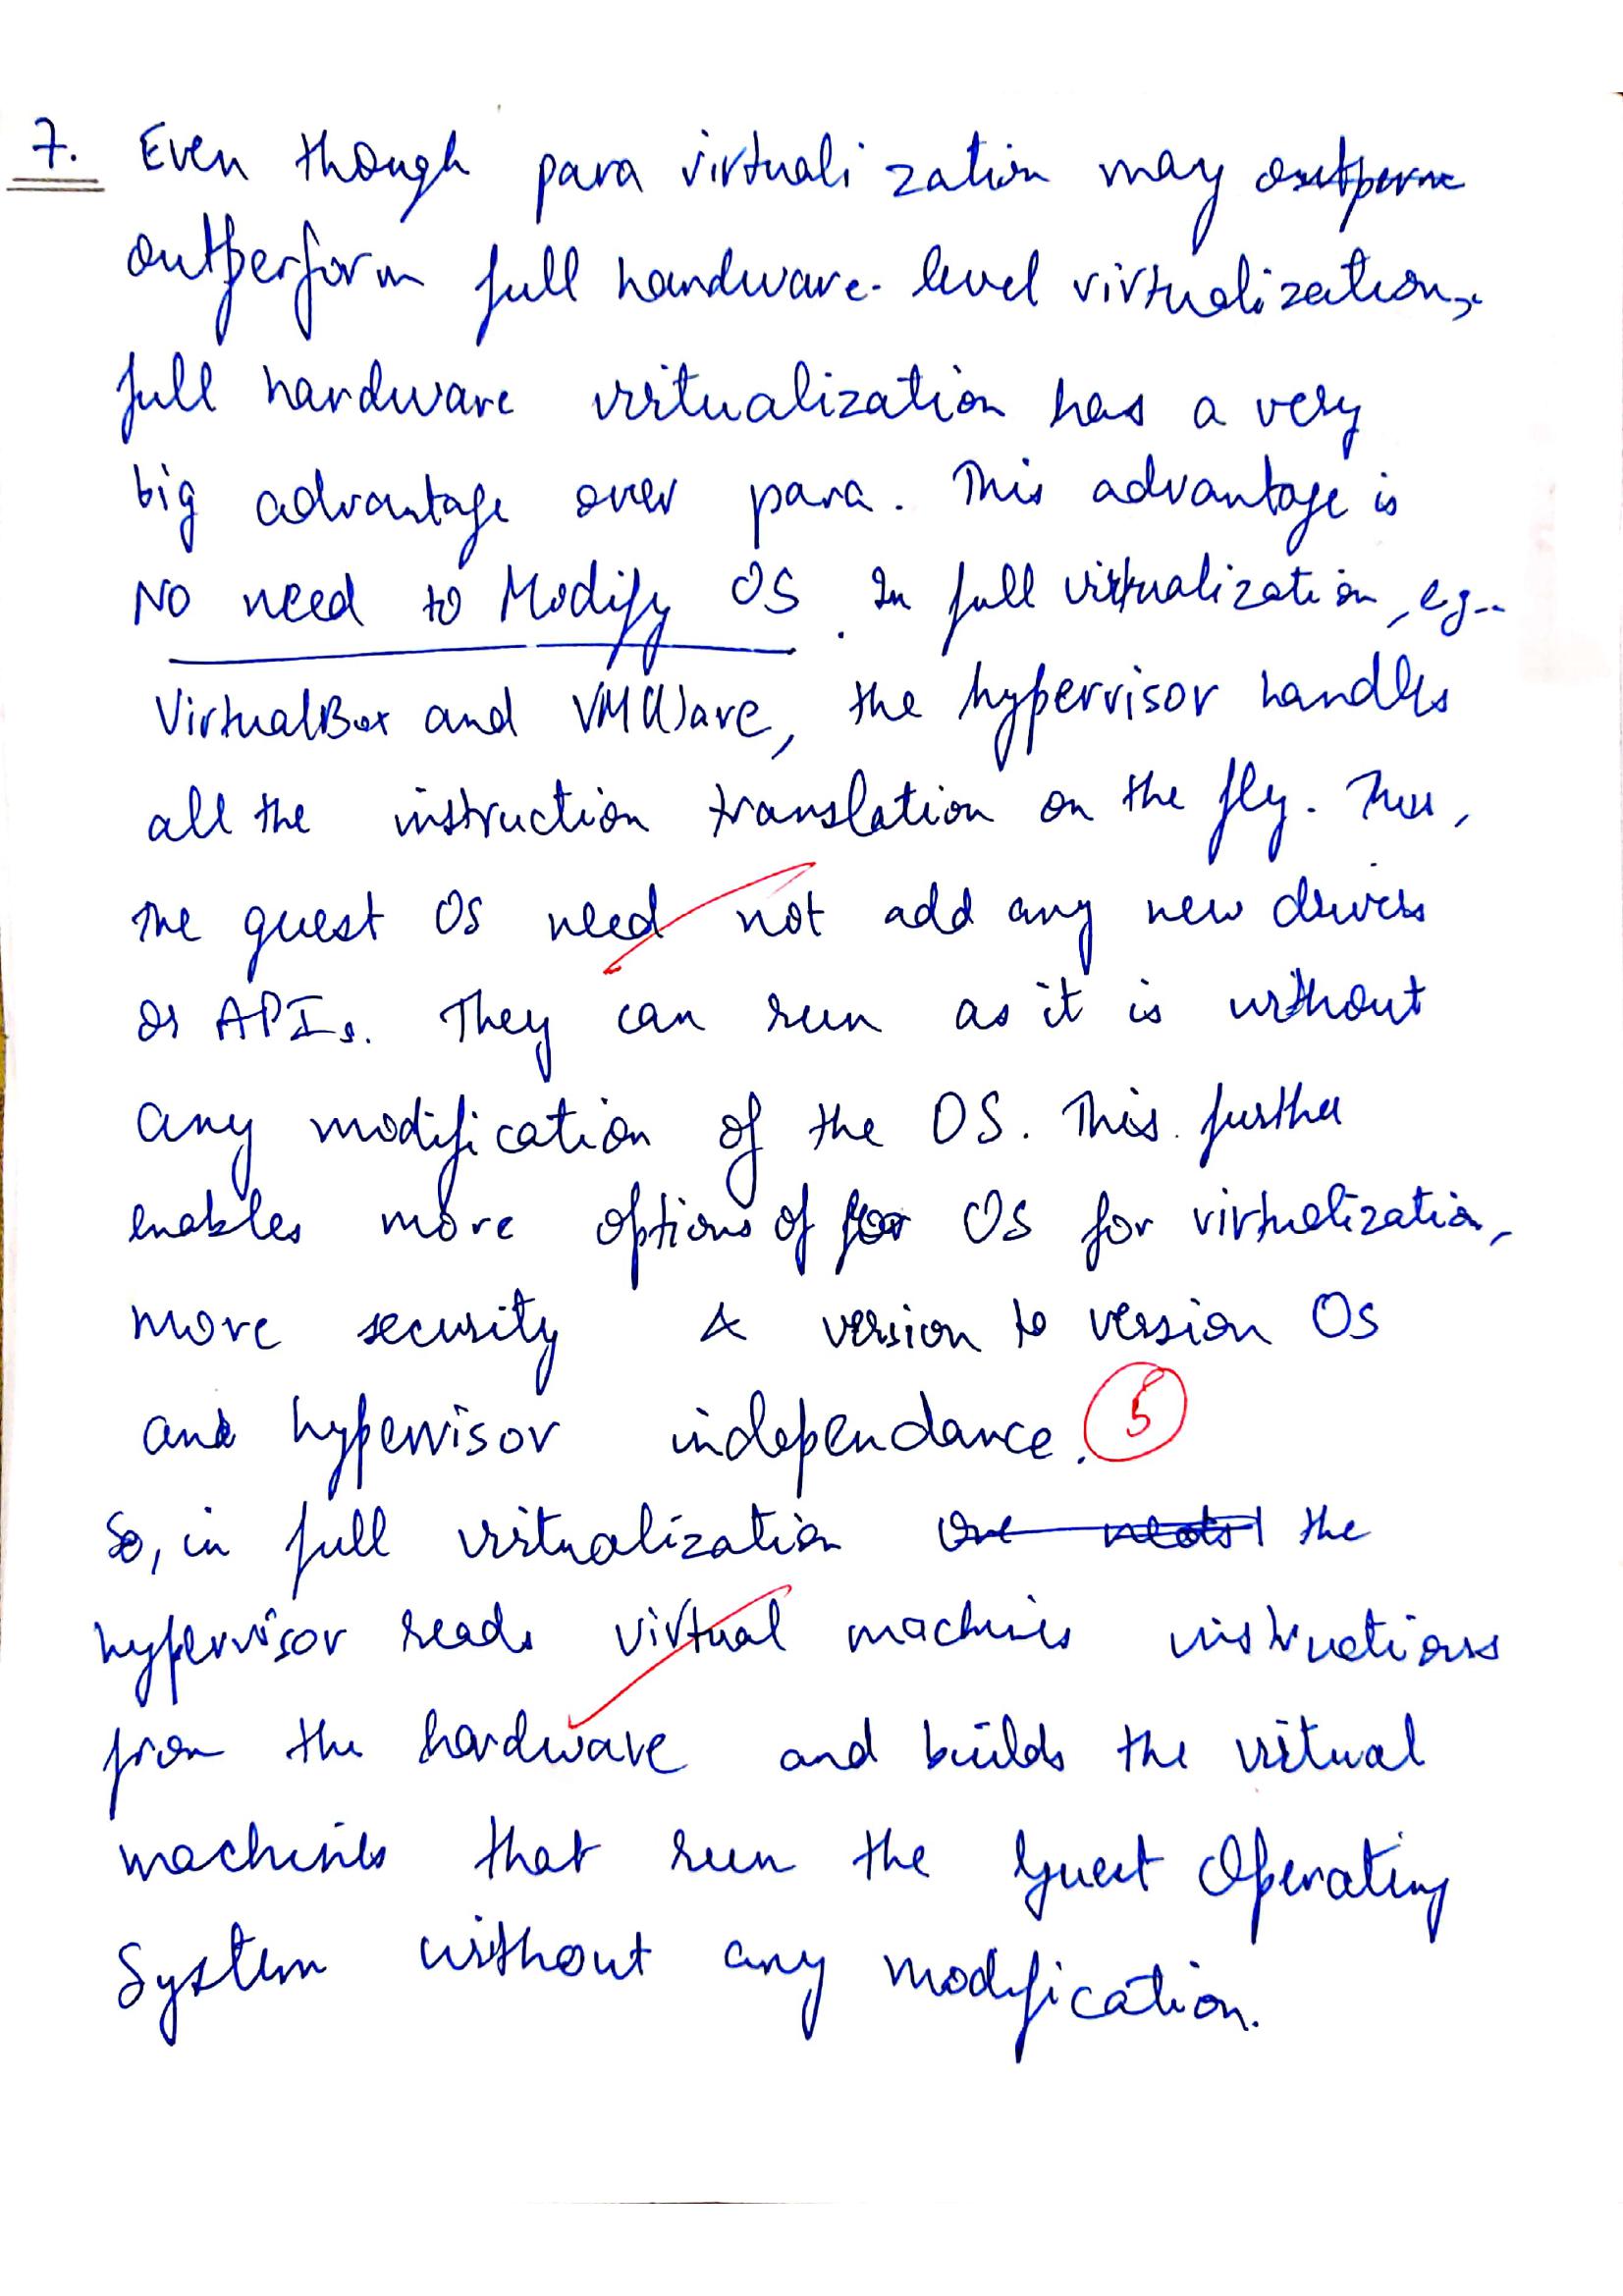 7. Even though para virtualization may outperm
outperform full handware-level virtualization,
full hardware virtualization has a very
big advantage over para. This advantage is
NO need to Modify OS. In full virtualization, e.g..
VirtualBox and VMWare, the hypervisor handles
all the instruction translation on the fly. Thus,
the guest OS need not add any new drivers
or APIs. They can run as it is without
any modification of the OS. This further
enables more options of for OS for virtualization,
more security & version to version OS
and hypervisor independance. 5
So, in full virtualization One needs the
hypervisor reads virtual machines instructions
from the hardware and builds the virtual
machines that run the Guest Operating
System without any modification.